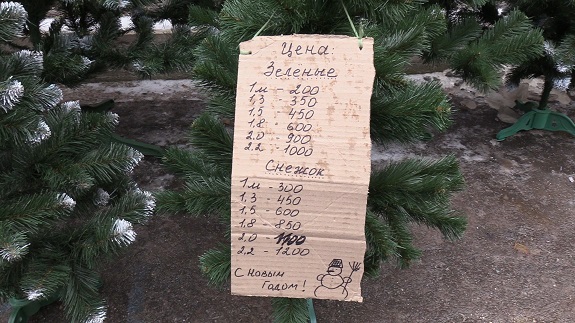 Цена:
Зеленые
1м - 200
1,3 - 350
1,5 - 450
1,8 - 600
2.0 - 900
2.2 - 1000
Снежок
1м - 300
1,3 - 450
1,5 - 600
1,8 - 850
2,0 - 1100
2,2 - 1200
С новым
Годом!